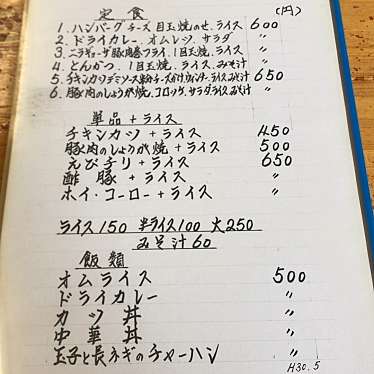 定食 (円)
1. ハンバーグチーズ目玉焼のせ、ライス 600
2. ドライカレー オムレツ、サラダ 〃
3. ニラギョーザ豚肉巻フライ、1目玉焼、ライス 〃
4. とんかつ、1目玉焼、ライス、みそ汁 〃
5. チキンカツデミソース チーズ ウインナー、ライス、みそ汁 650
6. 豚肉のしょうが焼、コロッケ、サラダ ライス みそ汁 〃
単品+ライス
チキンカツ+ライス 450
豚肉のしょうが焼+ライス 500
えびチリ+ライス 650
酢豚+ライス 〃
ホイ・コーロー+ライス 〃
ライス150 半ライス100 大250
みそ汁60
飯類
オムライス 500
ドライカレー 〃
カツ丼 〃
中華丼 〃
玉子と長ネギのチャーハン 〃
H30.5